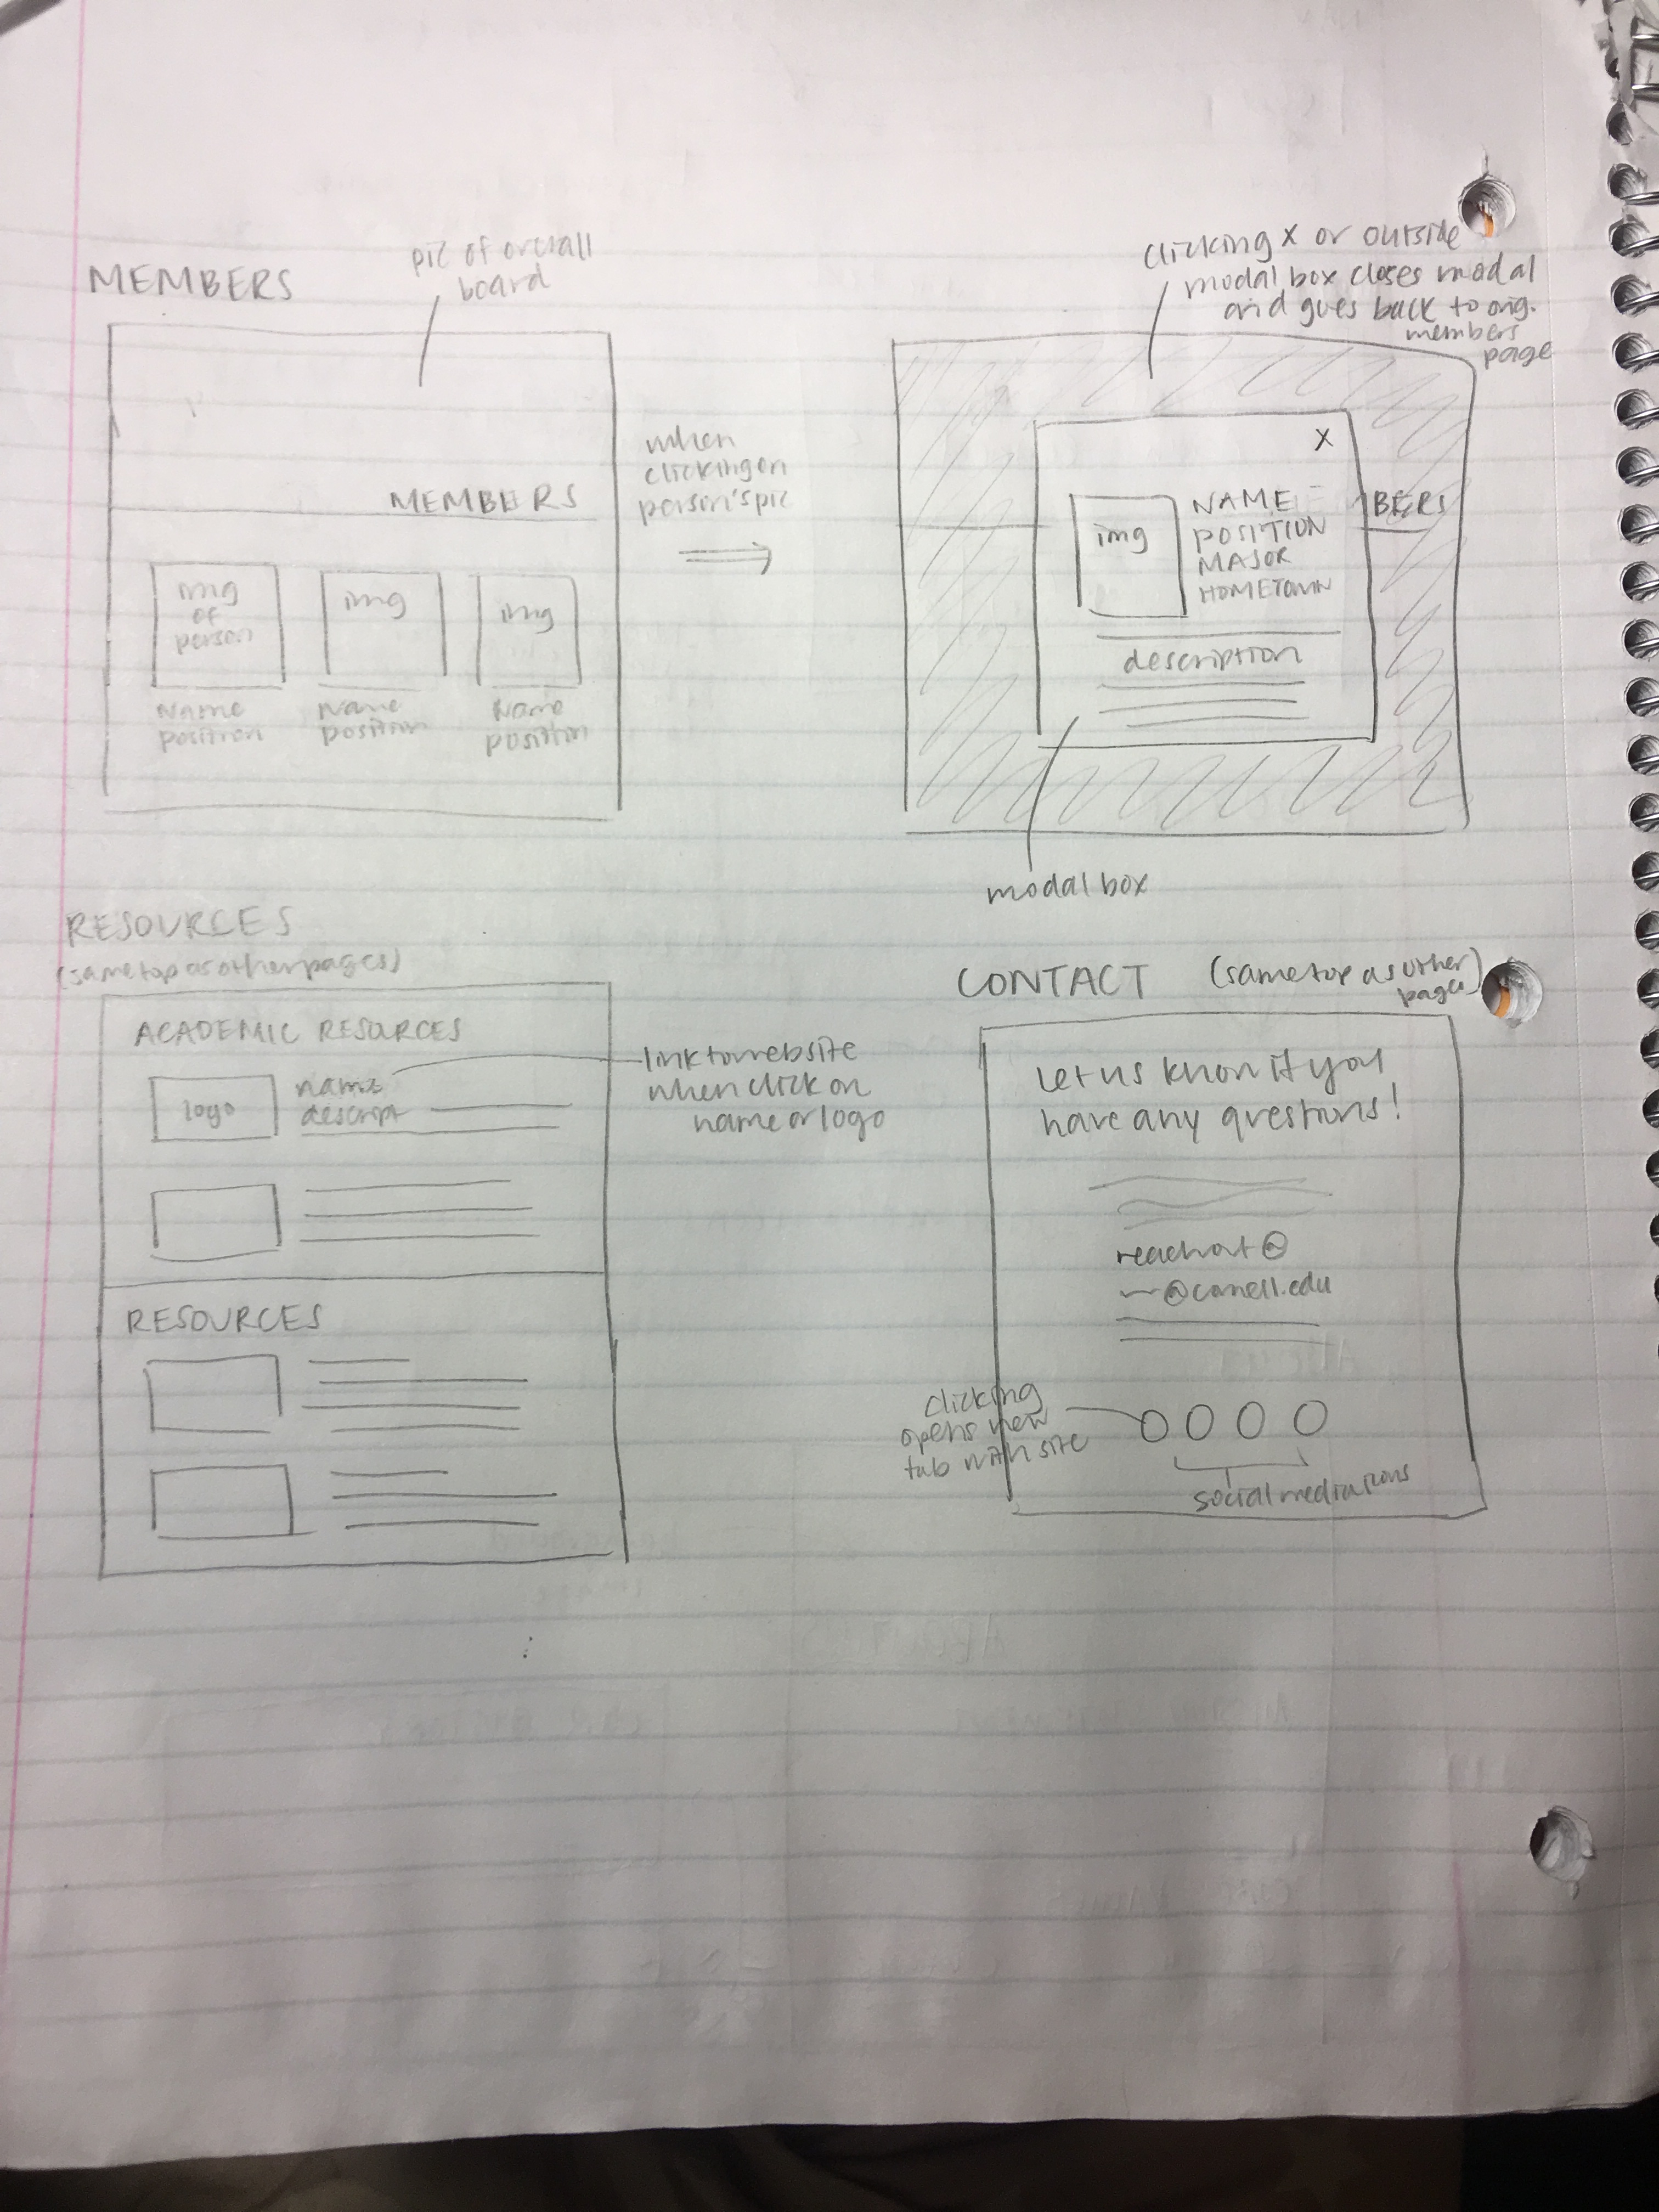 MEMBERS
pic of overall
board
MEMBERS
img
of
person
img
img
Name
position
Name
position
Name
position
when
clicking on
person's pic
clicking x or outside
modal box closes modal
and goes back to orig.
members
page
X
NAME
POSITION
MAJOR
HOMETOWN
img
BERS
description
modal box
RESOURCES
(same top as other pages)
ACADEMIC RESOURCES
logo
name
descript
link to website
when click on
name or logo
RESOURCES
CONTACT (same top as other
pages)
Let us know if you
have any questions!
reach out @
@cornell.edu
clicking
opens new
tab with site
social media icons
ABOUT US